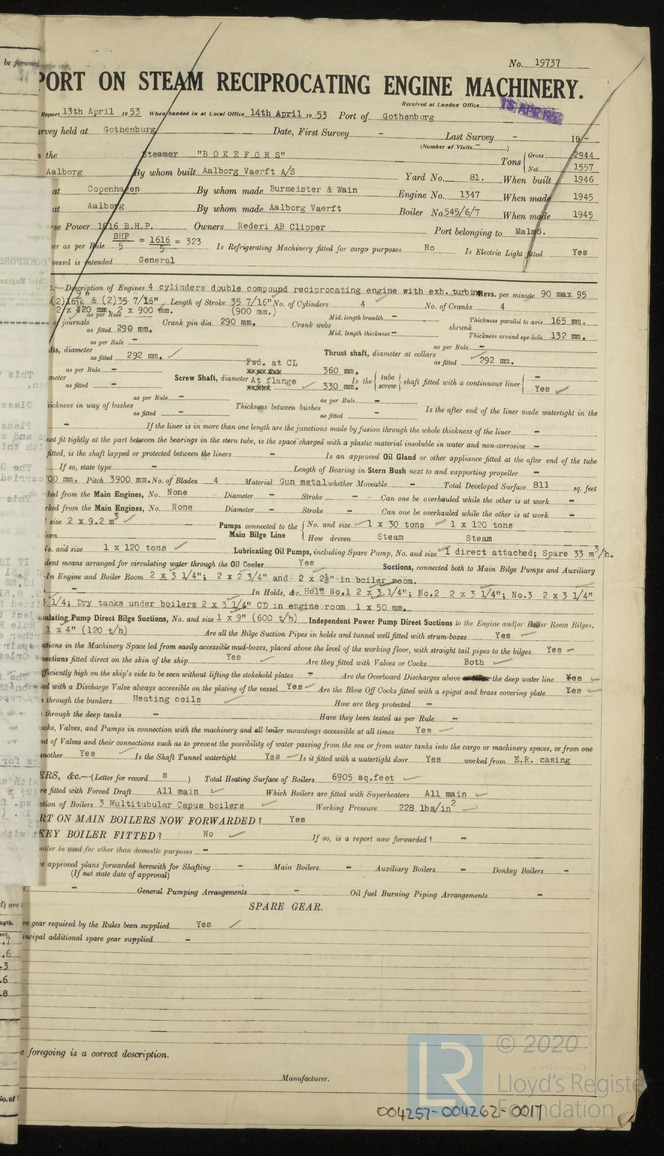 be forward
No. 19737
PORT ON STEAM RECIPROCATING ENGINE MACHINERY.
Received at London Office 15 APR 1953
Report 13th April 1953 When handed in at Local Office 14th April 1953 Port of Gothenburg
urvey held at Gothenburg Date, First Survey - Last Survey - 19
(Number of Visits - )
the steamer "BOKEFORS" Tons Gross 2944
Net 1557
Aalborg By whom built Aalborg Vaerft A/S Yard No. 81. When built 1946
at Copenhagen By whom made Burmeister & Wain Engine No. 1347 When made 1945
at Aalborg By whom made Aalborg Vaerft Boiler No. 545/6/7 When made 1945
rse Power 1616 B.H.P. Owners Rederi AB Clipper Port belonging to Malmö.
er as per Rule BHP/5 = 1616/5 = 323 Is Refrigerating Machinery fitted for cargo purposes No Is Electric Light fitted Yes
vessel is intended General
—Description of Engines 4 cylinders double compound reciprocating engine with exh. turbine Revs. per minute 90 max 95
& (2)35 7/16" Length of Stroke 35 7/16" No. of Cylinders 4 No. of Cranks 4
2 x 420 mm. 2 x 900 mm. (900 mm.)
journals as per Rule - as fitted 290 mm. Crank pin dia. 290 mm. Crank webs Mid. length breadth - Mid. length thickness - shrunk Thickness parallel to axis 165 mm. Thickness around eye-hole 132 mm.
fts, diameter as per Rule - as fitted 292 mm. Thrust shaft, diameter at collars as per Rule - as fitted 292 mm.
meter as per Rule - as fitted - Screw Shaft, diameter Fwd. at CL 360 mm. At flange 330 mm. Is the { tube screw } shaft fitted with a continuous liner { - Yes
hickness in way of bushes as per Rule - as fitted - Thickness between bushes as per Rule - as fitted - Is the after end of the liner made watertight in the
- If the liner is in more than one length are the junctions made by fusion through the whole thickness of the liner -
not fit tightly at the part between the bearings in the stern tube, is the space charged with a plastic material insoluble in water and non-corrosive -
fitted, is the shaft lapped or protected between the liners - Is an approved Oil Gland or other appliance fitted at the after end of the tube
If so, state type - Length of Bearing in Stern Bush next to and supporting propeller -
00 mm. Pitch 3900 mm. No. of Blades 4 Material Gun metal whether Moveable - Total Developed Surface 811 sq. feet
ked from the Main Engines, No. None Diameter - Stroke - Can one be overhauled while the other is at work -
rked from the Main Engines, No. None Diameter - Stroke - Can one be overhauled while the other is at work -
size 2 x 9.2 m3 Pumps connected to the Main Bilge Line { No. and size 1 x 30 tons 1 x 120 tons
How driven Steam Steam
No. and size 1 x 120 tons Lubricating Oil Pumps, including Spare Pump, No. and size 1 direct attached; Spare 33 m3/h.
dent means arranged for circulating water through the Oil Cooler Yes Suctions, connected both to Main Bilge Pumps and Auxiliary
—In Engine and Boiler Room 2 x 3 1/4"; 2 x 2 3/4" and 2 x 2½" in boiler room.
- In Holds, &c. Hold No.1 2 x 3 1/4"; No.2 2 x 3 1/4"; No.3 2 x 3 1/4"
3 1/4; Dry tanks under boilers 2 x 3 1/4" CD in engine room 1 x 50 mm.
ulating Pump Direct Bilge Suctions, No. and size 1 x 9" (600 t/h) Independent Power Pump Direct Suctions to the Engine and/or Boiler Room Bilges,
1 x 4" (120 t/h) Are all the Bilge Suction Pipes in holds and tunnel well fitted with strum-boxes Yes
uctions in the Machinery Space led from easily accessible mud-boxes, placed above the level of the working floor, with straight tail pipes to the bilges Yes -
nections fitted direct on the skin of the ship Yes Are they fitted with Valves or Cocks Both
fficiently high on the ship's side to be seen without lifting the stokehold plates - Are the Overboard Discharges above the deep water line Yes
ed with a Discharge Valve always accessible on the plating of the vessel Yes Are the Blow Off Cocks fitted with a spigot and brass covering plate Yes
through the bunkers Heating coils How are they protected -
through the deep tanks - Have they been tested as per Rule -
ocks, Valves, and Pumps in connection with the machinery and all boiler mountings accessible at all times Yes
nt of Valves and their connections such as to prevent the possibility of water passing from the sea or from water tanks into the cargo or machinery spaces, or from one
nother Yes Is the Shaft Tunnel watertight Yes Is it fitted with a watertight door Yes worked from E.R. casing
ERS, &c.—(Letter for record s ) Total Heating Surface of Boilers 6905 sq.feet
re fitted with Forced Draft All main Which Boilers are fitted with Superheaters All main
ption of Boilers 3 Multitubular Capus boilers Working Pressure 228 lbs/in2
RT ON MAIN BOILERS NOW FORWARDED? Yes
KEY BOILER FITTED? No If so, is a report now forwarded? -
oiler be used for other than domestic purposes -
e approved plans forwarded herewith for Shafting - Main Boilers - Auxiliary Boilers - Donkey Boilers -
(If not state date of approval)
- General Pumping Arrangements - Oil fuel Burning Piping Arrangements -
SPARE GEAR.
re gear required by the Rules been supplied Yes
incipal additional spare gear supplied -
e foregoing is a correct description.
Manufacturer.
© 2020
LR
Lloyd's Registe
Foundation
004257-004262-0017